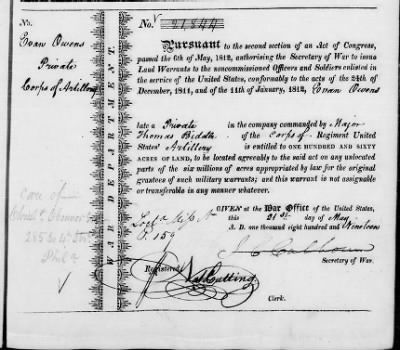 No.
Evan Owens
Private
Corps of Artillery
care of
Phila
WAR DEPARTMENT.
No. 21844
Pursuant to the second section of an Act of Congress,
passed the 6th of May, 1812, authorising the Secretary of War to issue
Land Warrants to the noncommissioned Officers and Soldiers enlisted in the
service of the United States, conformably to the acts of the 24th of
December, 1811, and of the 11th of January, 1812, Evan Owens
late a Private in the company commanded by Major
Thomas Biddle of the Corps of Regiment United
States Artillery is entitled to ONE HUNDRED AND SIXTY
ACRES OF LAND, to be located agreeably to the said act on any unlocated
parts of the six millions of acres appropriated by law for the original
grantees of such military warrants; and this warrant is not assignable
or transferable in any manner whatever.
GIVEN at the War Office of the United States,
this 21st day of May
A. D. one thousand eight hundred and Nineteen
J C Calhoun
Secretary of War.
Registered
Nat Cutting
Clerk.